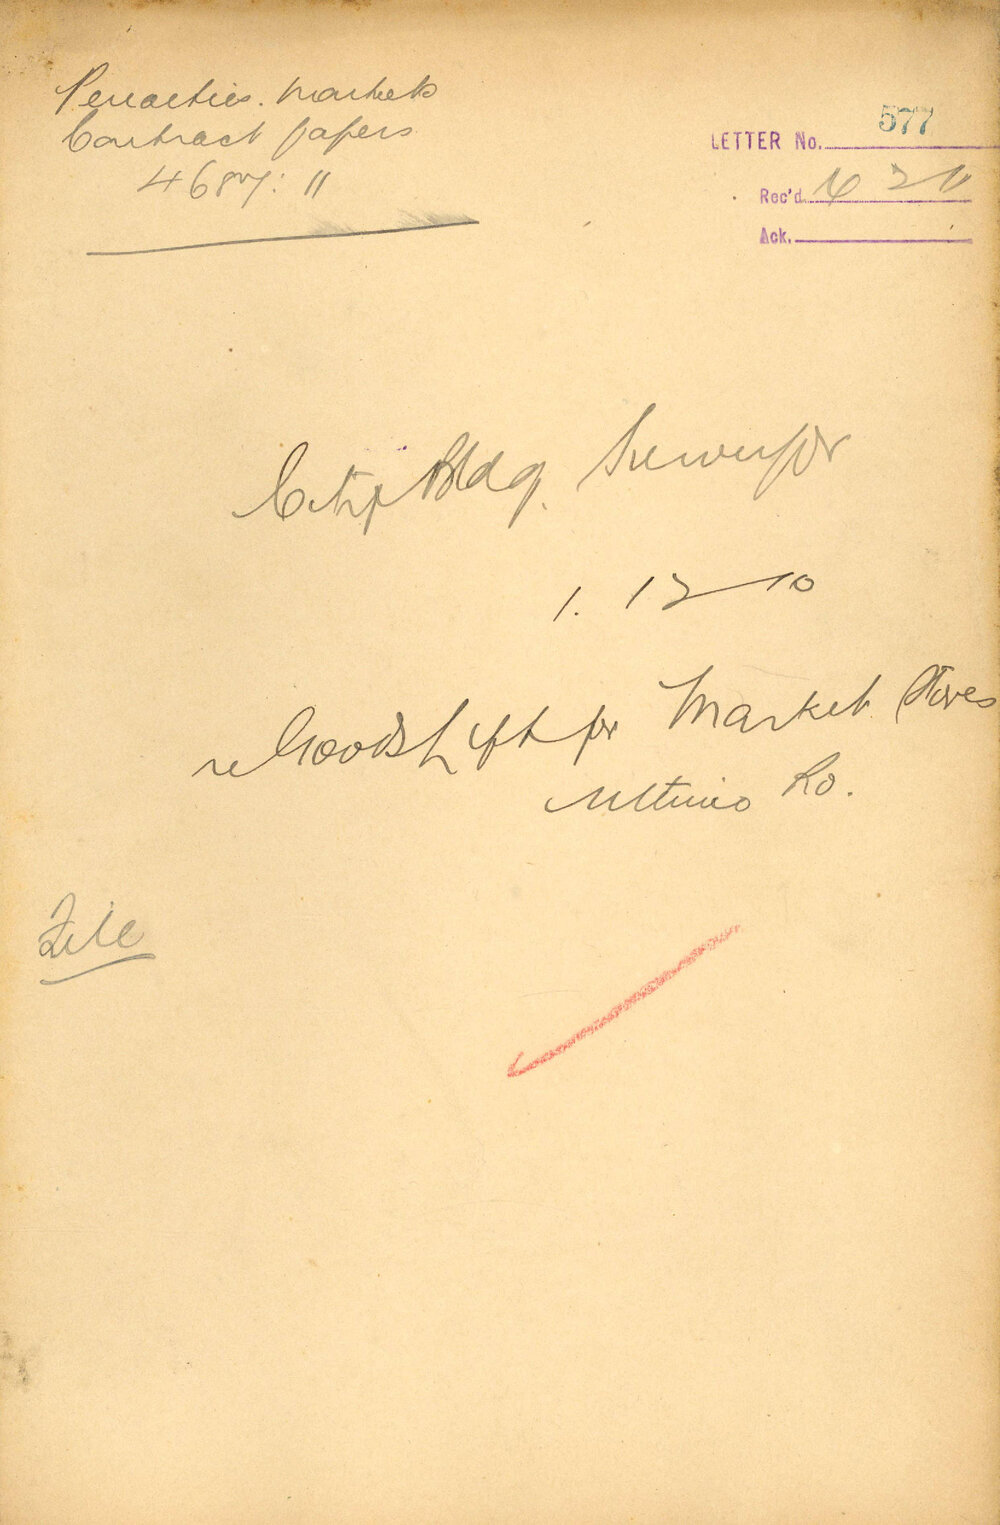 Penalties. Markets
Contract papers
4687: 11
LETTER No. 577
Rec'd 4 2 11
Ack.
City Bldg. Surveyor
1. 12 10
re Goods Lift for Market Stores
Ultimo Rd.
File